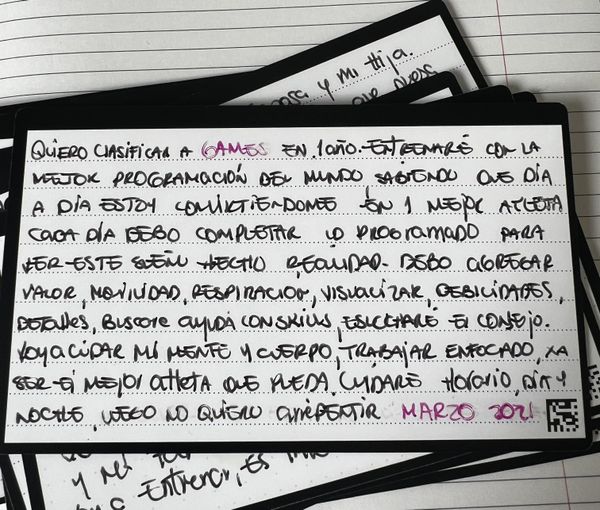 posa y mi Hija.
que pueda
QUIERO CLASIFICAR A GAMES EN 1 AÑO. ENTRENARÉ CON LA
MEJOR PROGRAMACIÓN DEL MUNDO, SABIENDO QUE DÍA
A DÍA ESTOY CONVIRTIENDOME EN 1 MEJOR ATLETA
CADA DÍA DEBO COMPLETAR LO PROGRAMADO PARA
VER ESTE SUEÑO HECHO REALIDAD. DEBO AGREGAR
VALOR, MOVILIDAD, RESPIRACION, VISUALIZAR, DEBILIDADES,
DETALLES, BUSCARE AYUDA CON SKILLS, ESCUCHARÉ EL CONSEJO.
VOY A CUIDAR MI MENTE Y CUERPO, TRABAJAR ENFOCADO, XA
SER EL MEJOR atleta QUE PUEDA. CUIDARÉ HORARIO, DÍA Y
NOCHE, LUEGO NO QUIERO ARREPENTIR MARZO 2021
Y Mi
Entrenar, ES